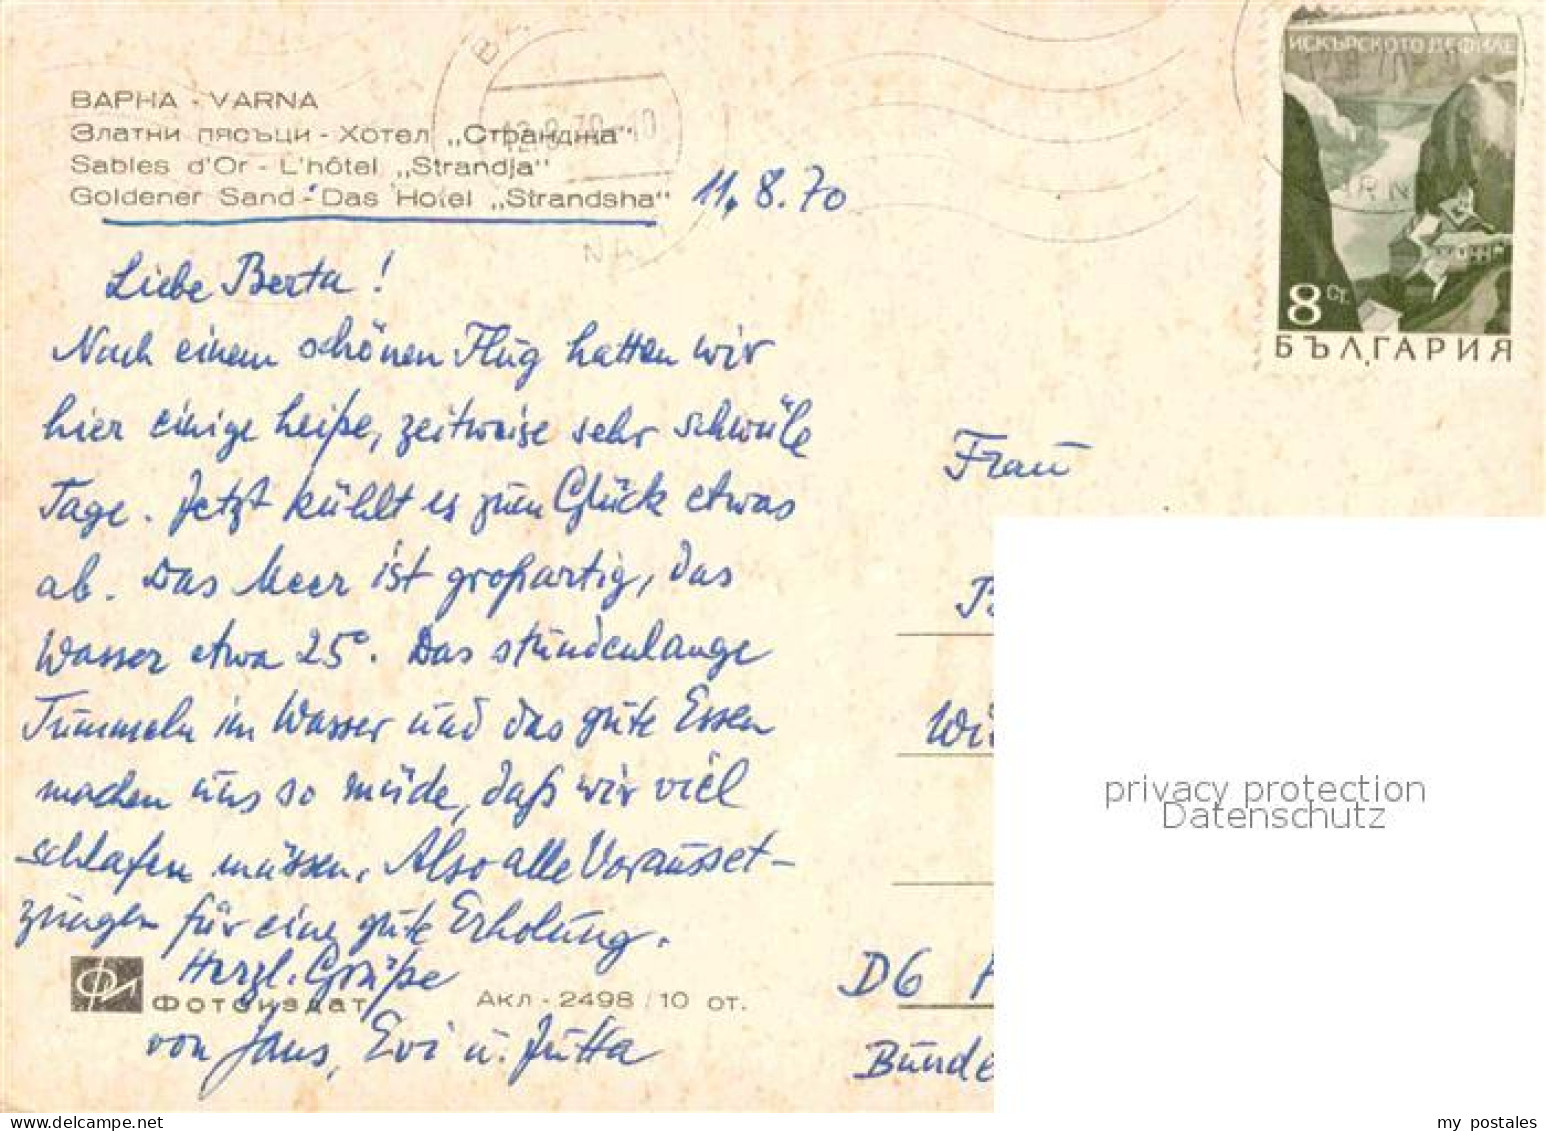 ВАРНА - VARNA
Златни пясъци - Хотел „Странджа“
Sables d'Or - L'hôtel „Strandja“
Goldener Sand - Das Hotel „Strandsha“ 11.8.70
Liebe Berta!
Nach einem schönen Flug hatten wir
hier einige heiße, zeitweise sehr schwüle
Tage. Jetzt kühlt es zum Glück etwas
ab. Das Meer ist großartig, das
Wasser etwa 25°. Das stundenlange
Tummeln im Wasser und das gute Essen
machen uns so müde, daß wir viel
schlafen müssen. Also alle Vorausset-
zungen für eine gute Erholung.
Herzl. Grüße
von Jans, Evi u. Jutta
Фотоиздат Акл - 2498 / 10 от.
ИСКЪРСКОТО ДЕФИЛЕ
8 СТ.
БЪЛГАРИЯ
Frau
Wi
D6
Bunde
privacy protection
Datenschutz
my postales